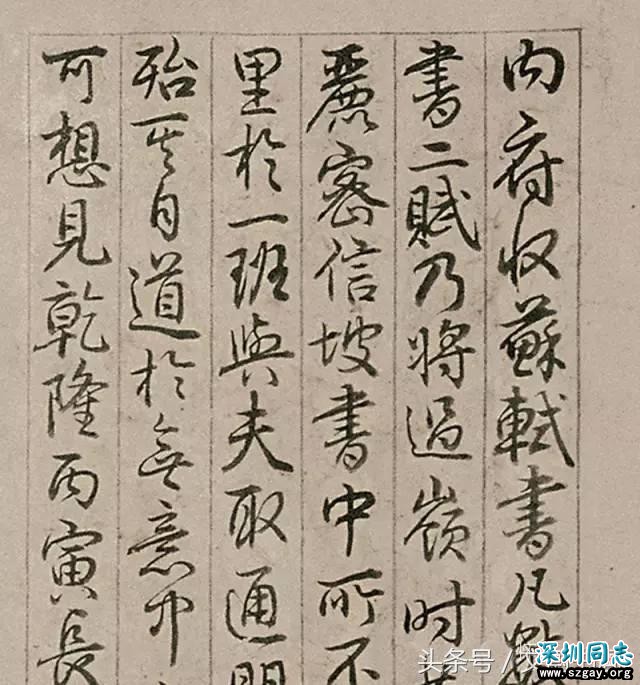 内府收蘇軾書凡數
書二賦乃將過嶺時
麗密信坡書中所不
里於一班與夫取通明
殆其自道於無意中
可想見乾隆丙寅長
头条号
深圳同志
www.szgay.org